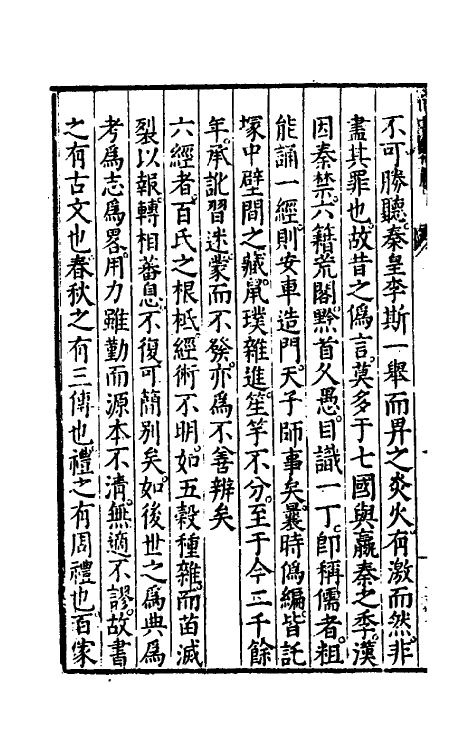 不可勝聽秦皇李斯一舉而畀之炎火有激而然非
盡其罪也故昔之僞言莫多于七國與嬴秦之季漢
因秦禁六籍荒閣黔首久愚目識一丁卽稱儒者粗
能誦一經則安車造門天子師事矣曩時僞編皆託
塚中壁間之藏鼠璞雜進笙竽不分至于今二千餘
年承訛習迷蒙而不發亦爲不善辨矣
六經者百氏之根柢經術不明如五穀種雜而苗滅
裂以報轉相蕃息不復可簡別矣如後世之爲典爲
考爲志爲畧用力雖勤而源本不清無適不謬故書
之有古文也春秋之有三傳也禮之有周禮也百家